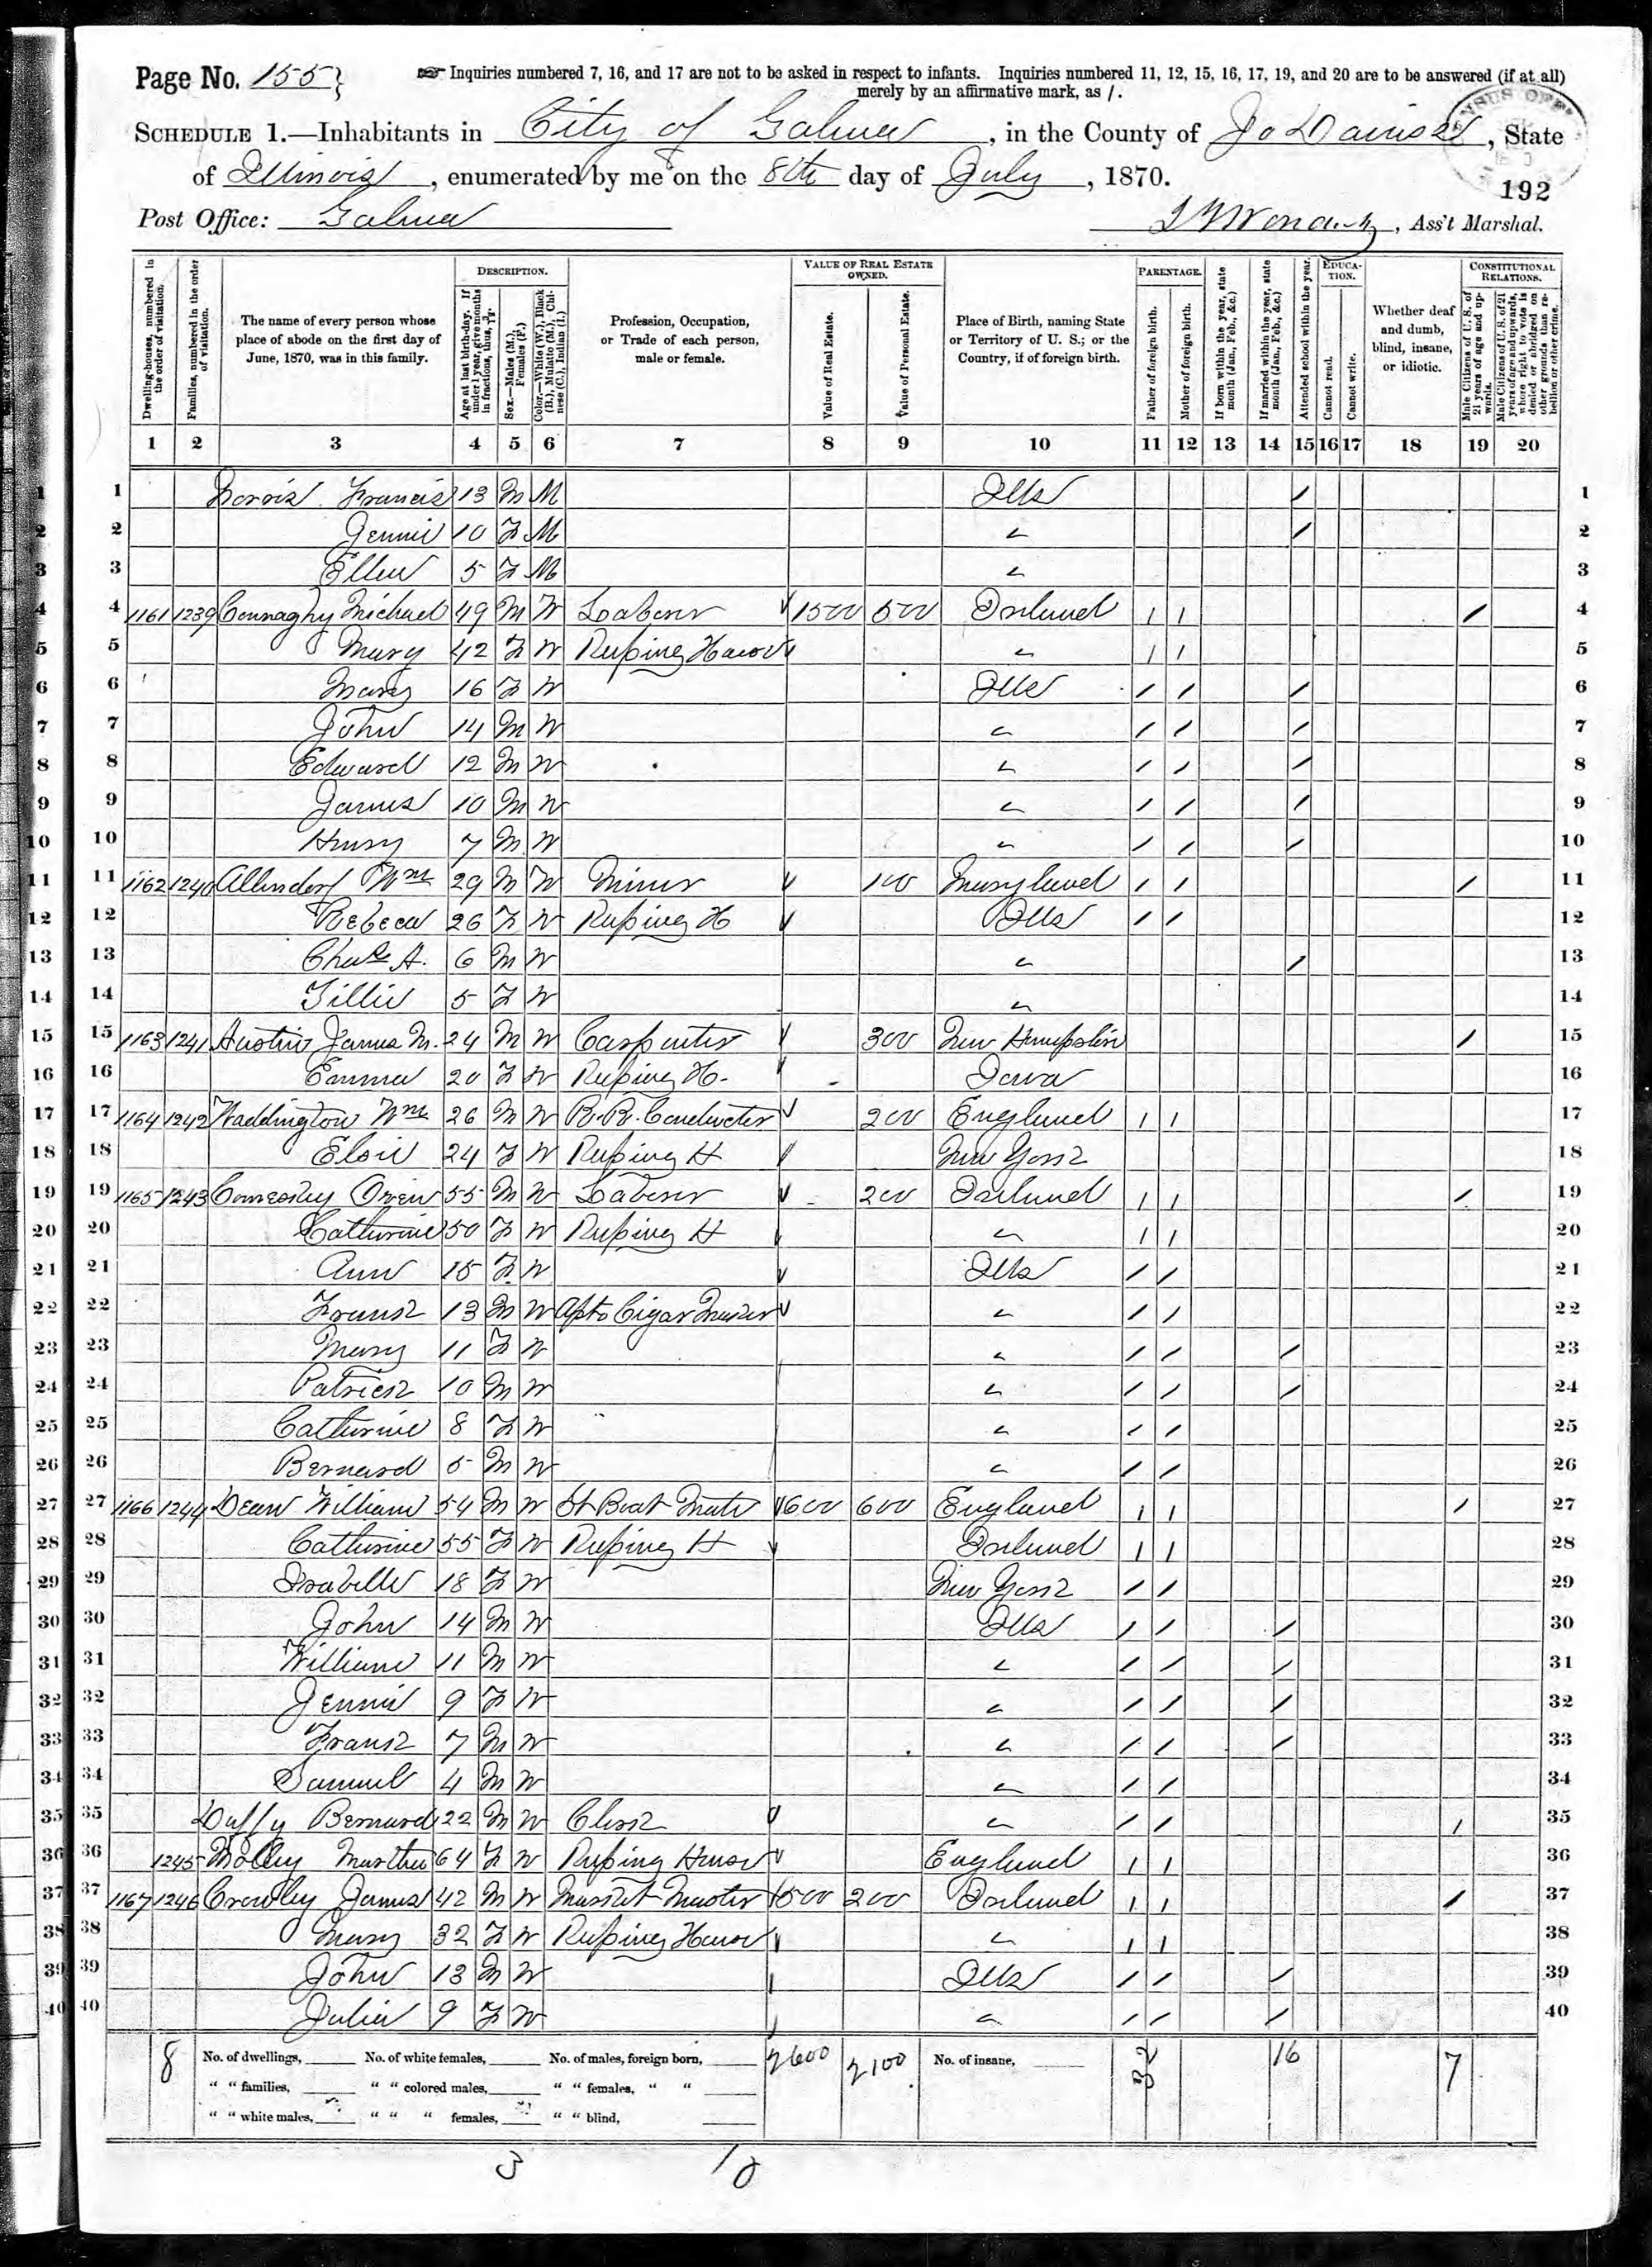 Page No. 155} Inquiries numbered 7, 16, and 17 are not to be asked in respect to infants. Inquiries numbered 11, 12, 15, 16, 17, 19, and 20 are to be answered (if at all)
merely by an affirmative mark, as /.
SCHEDULE 1.—Inhabitants in City of Galena, in the County of Jo Daviess, State
of Illinois, enumerated by me on the 8th day of July, 1870.
192
Post Office: Galena
, Ass't Marshal.
Dwelling-houses, numbered in the order of visitation.
Families, numbered in the order of visitation.
The name of every person whose place of abode on the first day of June, 1870, was in this family.
DESCRIPTION.
Age at last birth-day. If under 1 year, give months in fractions, thus, 3/12.
Sex.—Males (M.), Females (F.)
Color.—White (W.), Black (B.), Mulatto (M.), Chinese (C.), Indian (I.)
Profession, Occupation, or Trade of each person, male or female.
VALUE OF REAL ESTATE OWNED.
Value of Real Estate.
Value of Personal Estate.
Place of Birth, naming State or Territory of U. S.; or the Country, if of foreign birth.
PARENTAGE.
Father of foreign birth.
Mother of foreign birth.
If born within the year, state month (Jan., Feb., &c.)
If married within the year, state month (Jan., Feb., &c.)
Attended school within the year.
EDUCATION.
Cannot read.
Cannot write.
Whether deaf and dumb, blind, insane, or idiotic.
CONSTITUTIONAL RELATIONS.
Male Citizens of U. S. of 21 years of age and upwards.
Male Citizens of U. S. of 21 years of age and upwards, whose right to vote is denied or abridged on other grounds than rebellion or other crime.
1 2 3 4 5 6 7 8 9 10 11 12 13 14 15 16 17 18 19 20
1 1 Francis 13 M M Ills / 1
2 2 Jennie 10 F M " / 2
3 3 Ellen 5 F M " 3
4 4 1161 1239 Connaghy Michael 49 M W Laborer 1500 500 Ireland / / / 4
5 5 Mary 42 F W Keeping House " / / 5
6 6 Mary 16 F W Ills / / / 6
7 7 John 14 M W " / / / 7
8 8 Edward 12 M W " / / / 8
9 9 James 10 M W " / / / 9
10 10 Henry 7 M W " / / / 10
11 11 1162 1240 Allendorf Wm 29 M W Miner 100 Maryland / / / 11
12 12 Rebeca 26 F W Keeping H Ills / / 12
13 13 Chas A. 6 M W " / 13
14 14 Tillie 5 F W " 14
15 15 1163 1241 Austin James M. 24 M W Carpenter 300 New Hampshire / 15
16 16 Emma 20 F W Keeping H. Iowa 16
17 17 1164 1242 Waddington Wm 26 M W R. R. Conductor 200 England / / 17
18 18 24 F W Keeping H New York 18
19 19 1165 1243 Owen 55 M W Laborer 200 Ireland / / / 19
20 20 Catherine 50 F W Keeping H " / / 20
21 21 Ann 15 F W Ills / / 21
22 22 Frank 13 M W Apt to Cigar Maker " / / 22
23 23 Mary 11 F W " / / / 23
24 24 Patrick 10 M W " / / / 24
25 25 Catherine 8 F W " / / 25
26 26 Bernard 5 M W " / / 26
27 27 1166 1244 Dean William 54 M W St Boat Mate 600 600 England / / / 27
28 28 Catherine 55 F W Keeping H Ireland / / 28
29 29 Isabelle 18 F W New York / / 29
30 30 John 14 M W Ills / / / 30
31 31 William 11 M W " / / / 31
32 32 Jennie 9 F W " / / / 32
33 33 Frank 7 M W " / / / 33
34 34 Samuel 4 M W " / / 34
35 35 Duffy Bernard 22 M W Clerk " / / / 35
36 36 1245 Martha 64 F W Keeping House England / / 36
37 37 1167 1246 Crowley James 42 M W Market Master 500 200 Ireland / / / 37
38 38 Mary 32 F W Keeping House " / / 38
39 39 John 13 M W Ills / / / 39
40 40 Julia 9 F W " / / / 40
8 No. of dwellings, No. of white females, No. of males, foreign born, 2600 2100 No. of insane, 32 16 7
" " families, " " colored males, " " females, " "
" " white males, " " " females, " " blind,
3 10